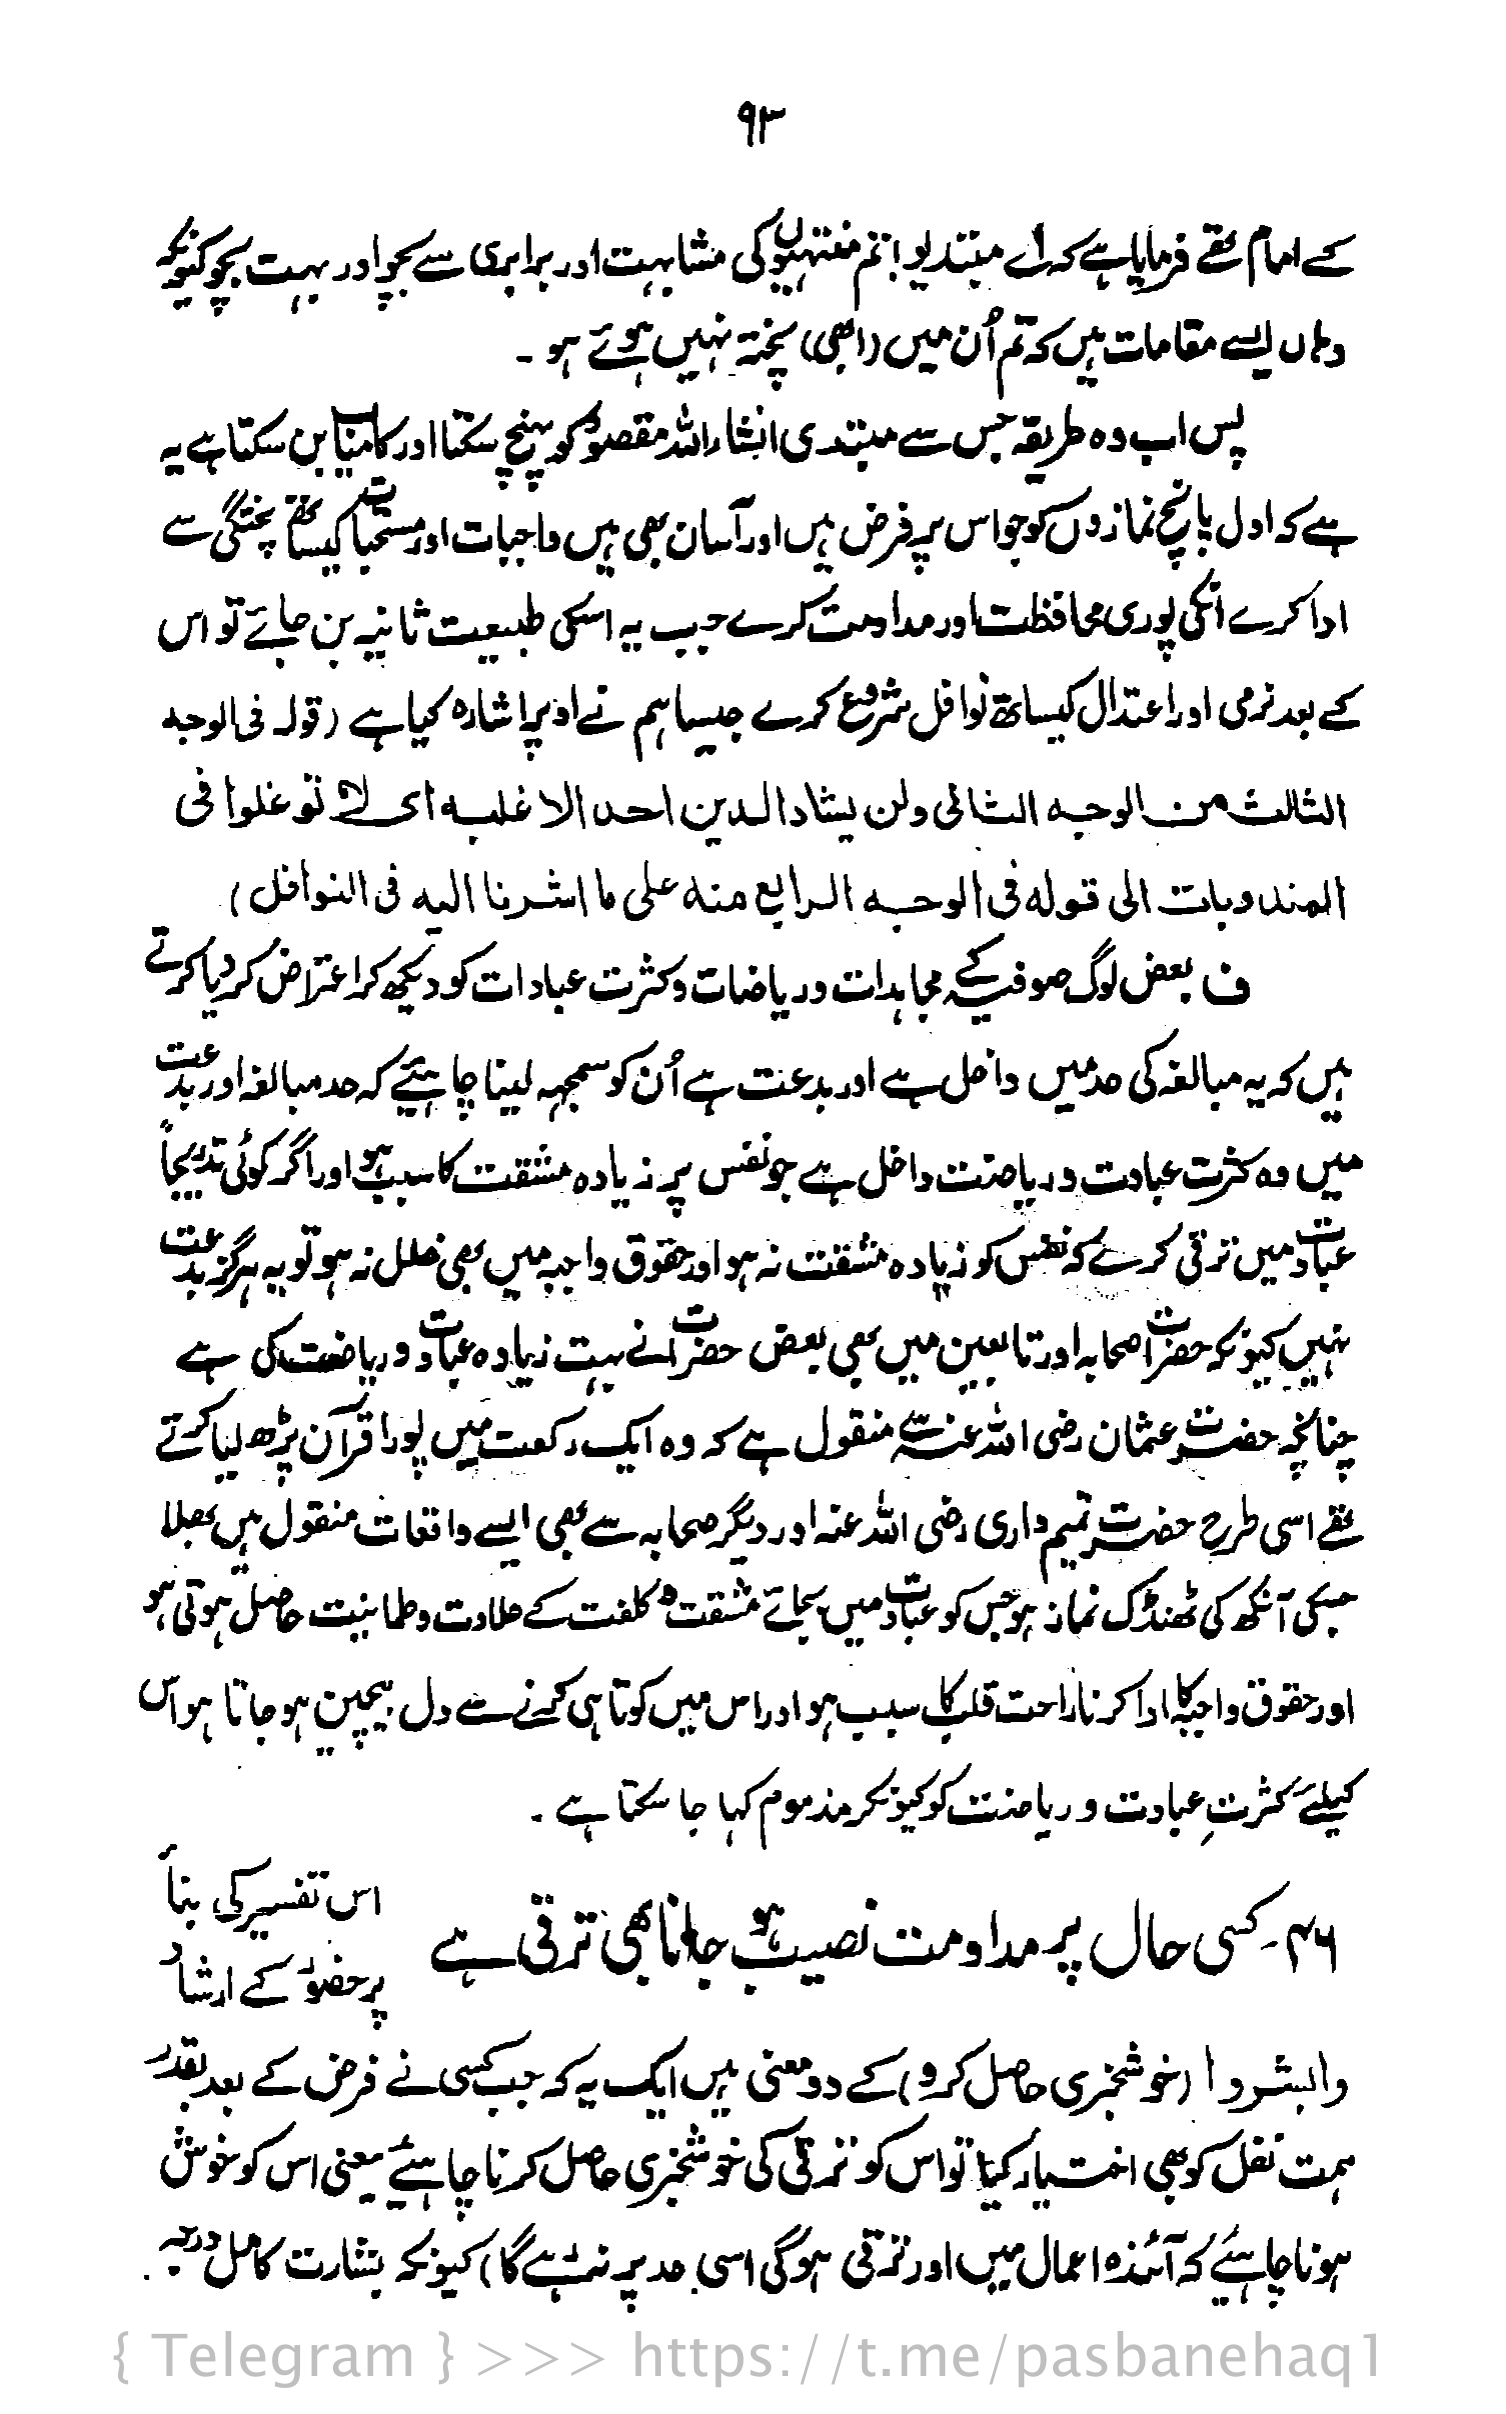 ۹۳
کے امام تھے فرمایا ہے کہ اے مبتدیو! تم منتہیوں کی مشابہت اور برابری سے بچو اور بہت بچو کیونکہ
وہاں ایسے مقامات ہیں کہ تم اُن میں (ابھی) پختہ نہیں ہوئے ہو ۔
پس اب وہ طریقہ جس سے مبتدی انشاء اللہ مقصود کو پہنچ سکتا اور کامیاب بن سکتا ہے یہ
ہے کہ اول پانچ نمازوں کو جو اس پر فرض ہیں اور آسان بھی ہیں واجبات اور مستحبات کیساتھ پختگی سے
ادا کرے انکی پوری محافظت اور مداومت کرے جب یہ اسکی طبیعت ثانیہ بن جائے تو اس
کے بعد نرمی اور اعتدال کیساتھ نوافل شروع کرے جیسا ہم نے اوپر اشارہ کیا ہے (قولہ فی الوجہ
الثالث من الوجہ الثانی ولن یشاد الدین احد الا غلبہ ای لا توغلوا فی
المندوبات الی قولہ فی الوجہ الرابع منہ علی ما اشرنا الیہ فی النوافل)
ف بعض لوگ صوفیہ کے مجاہدات و ریاضات و کثرت عبادات کو دیکھ کر اعتراض کر دیا کرتے
ہیں کہ یہ مبالغہ کی حد میں داخل ہے اور بدعت ہے اُن کو سمجھ لینا چاہئیے کہ حد مبالغہ اور بدعت
میں وہ کثرت عبادت و ریاضت داخل ہے جو نفس پر زیادہ مشقت کا سبب ہو اور اگر کوئی تدریجاً
عبادت میں ترقی کرے کہ نفس کو زیادہ مشقت نہ ہو اور حقوق واجبہ میں بھی خلل نہ ہو تو یہ ہرگز بدعت
نہیں کیونکہ حضرات صحابہ اور تابعین میں بھی بعض حضرات نے بہت زیادہ عبادت و ریاضت کی ہے
چنانچہ حضرت عثمان رضی اللہ عنہ سے منقول ہے کہ وہ ایک رکعت میں پورا قرآن پڑھ لیا کرتے
تھے اسی طرح حضرت تمیم داری رضی اللہ عنہ اور دیگر صحابہ سے بھی ایسے واقعات منقول ہیں بھلا
جسکی آنکھ کی ٹھنڈک نماز ہو جس کو عبادت میں بجائے مشقت و کلفت کے حلاوت و طمانینت حاصل ہوتی ہو
اور حقوق واجبہ کا ادا کرنا راحت قلب کا سبب ہو اور اس میں کوتاہی کرنے سے دل بیچین ہو جاتا ہو اس
کیلئے کثرتِ عبادت و ریاضت کو کیونکر مذموم کہا جا سکتا ہے ۔
۴۶۔ کسی حال پر مداومت نصیب ہو جانا بھی ترقی ہے
اس تفسیر کی بنأ
پر حضورؐ کے ارشاد
وابشروا (خوشخبری حاصل کرو) کے دو معنی ہیں ایک یہ کہ جب کسی نے فرض کے بعد بقدر
ہمت نفل کو بھی اختیار کیا تو اس کو ترقی کی خوشخبری حاصل کرنا چاہئے یعنی اس کو خوش
ہونا چاہئے کہ آئندہ اعمال میں اور ترقی ہوگی اسی حد پر نہ رہے گا) کیونکہ بشارت کامل درجہ
{ Telegram } >>> https://t.me/pasbanehaq1